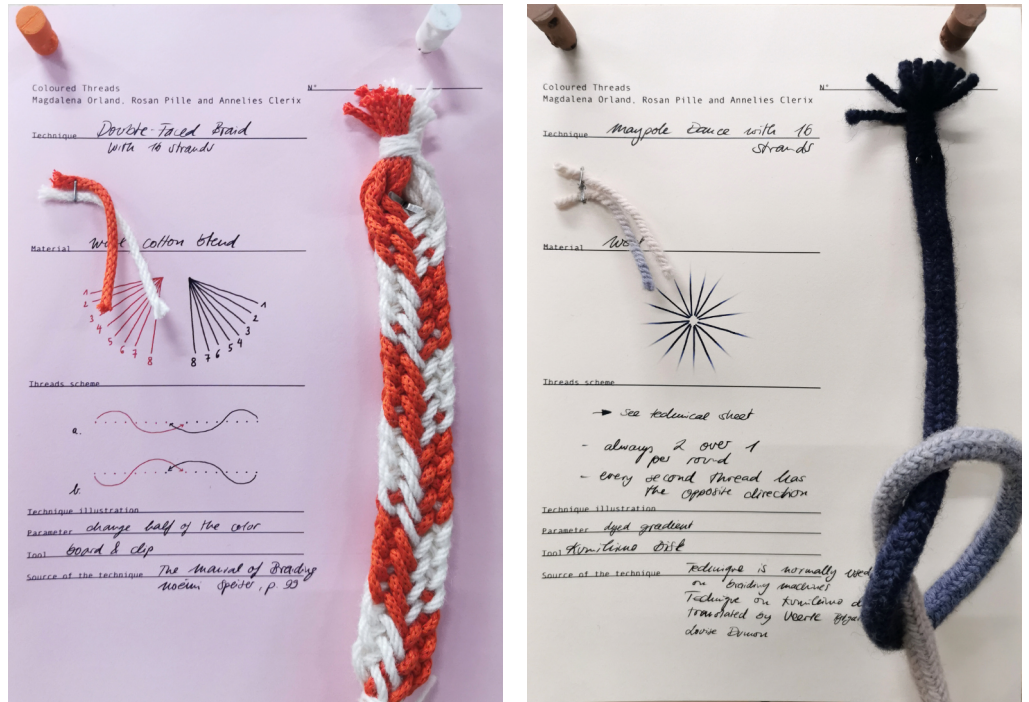 Coloured Threads
Magdalena Orland, Rosan Pille and Annelies Clerix
N°
Technique Double-Faced Braid
with 16 strands
Material cotton blend
1
2
3
4
5
6
7
8
1
2
3
4
5
6
7
8
Threads scheme
a.
b.
Technique illustration
Parameter change half of the color
Tool board & clip
Source of the technique The manual of Braiding
noémi Speiser, p. 99
Coloured Threads
Magdalena Orland, Rosan Pille and Annelies Clerix
N°
Technique Maypole Dance with 16
strands
Material
Threads scheme
→ see technical sheet
- always 2 over 1
per round
- every second thread has
the opposite direction
Technique illustration
Parameter dyed gradient
Tool Kumihimo Disk
Source of the technique Technique is normally used
on braiding machines
Technique on Kumihimo
translated by
Louise Dumon